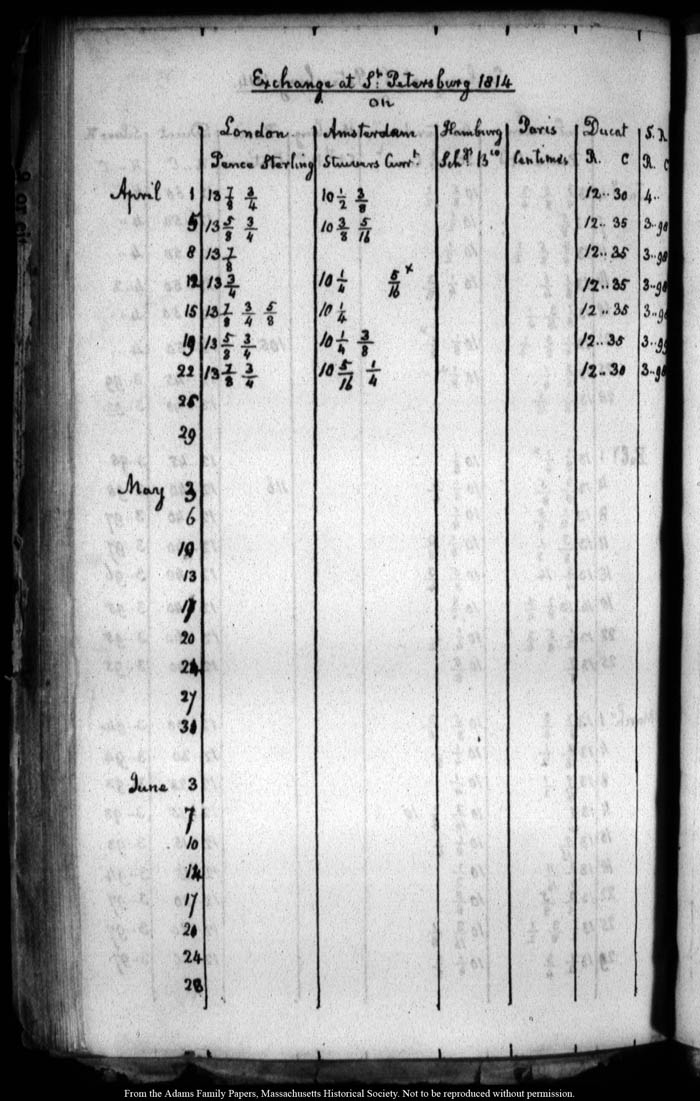 Exchange at St. Petersburg 1814
on
London Amsterdam Hamburg Paris Ducat S. R
Pence Sterling Stuivers Currt. Schgs Bco Centimes R. C R. C
April 1 13 7/8 3/4 10 1/2 3/8 12.. 30 4..
5 13 5/8 3/4 10 3/8 5/16 12.. 35 3..98
8 13 7/8 12.. 35 3..98
12 13 3/4 10 1/4 5/16 x 12.. 35 3..98
15 13 7/8 3/4 5/8 10 1/4 12.. 35 3..98
19 13 5/8 3/4 10 1/4 3/8 12.. 35 3..99
22 13 7/8 3/4 10 5/16 1/4 12.. 30 3..98
26
29
May 3
6
10
13
17
20
24
27
31
June 3
7
10
14
17
21
24
28
From the Adams Family Papers, Massachusetts Historical Society. Not to be reproduced without permission.